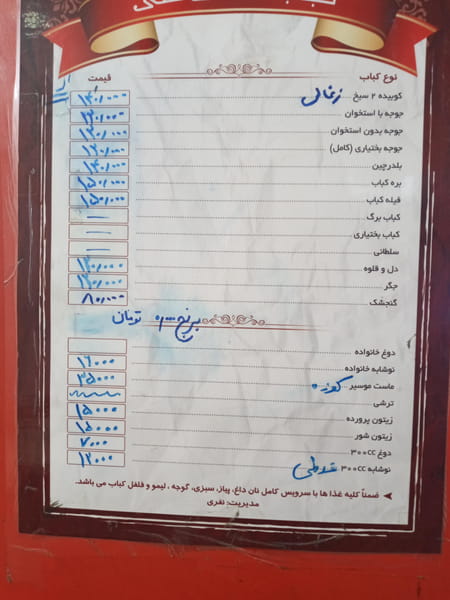 نوع کباب قیمت
کوبیده ۲ سیخ زغالی ۱۴۰/۰۰۰
جوجه با استخوان
جوجه بدون استخوان
جوجه بختیاری (کامل) ۱۲۰/۰۰۰
بلدرچین ۱۴۰/۰۰۰
بره کباب ۱۵۰/۰۰۰
فیله کباب ۱۵۰/۰۰۰
کباب برگ —
کباب بختیاری —
سلطانی —
دل و قلوه ۱۳۰/۰۰۰
جگر ۱۳۰/۰۰۰
گنجشک ۸۰/۰۰۰
برنج تومان
دوغ خانواده
نوشابه خانواده ۱۶۰۰۰
ماست موسیر کوزه ۳۵۰۰۰
ترشی
زیتون پرورده ۱۵۰۰۰
زیتون شور ۱۵۰۰۰
دوغ ۳۰۰cc ۷۰۰۰
نوشابه ۳۰۰cc ۱۲۰۰۰
ضمناً کلیه غذا ها با سرویس کامل نان داغ، پیاز، سبزی، گوجه ، لیمو و فلفل کباب می باشد.
مدیریت: نفری